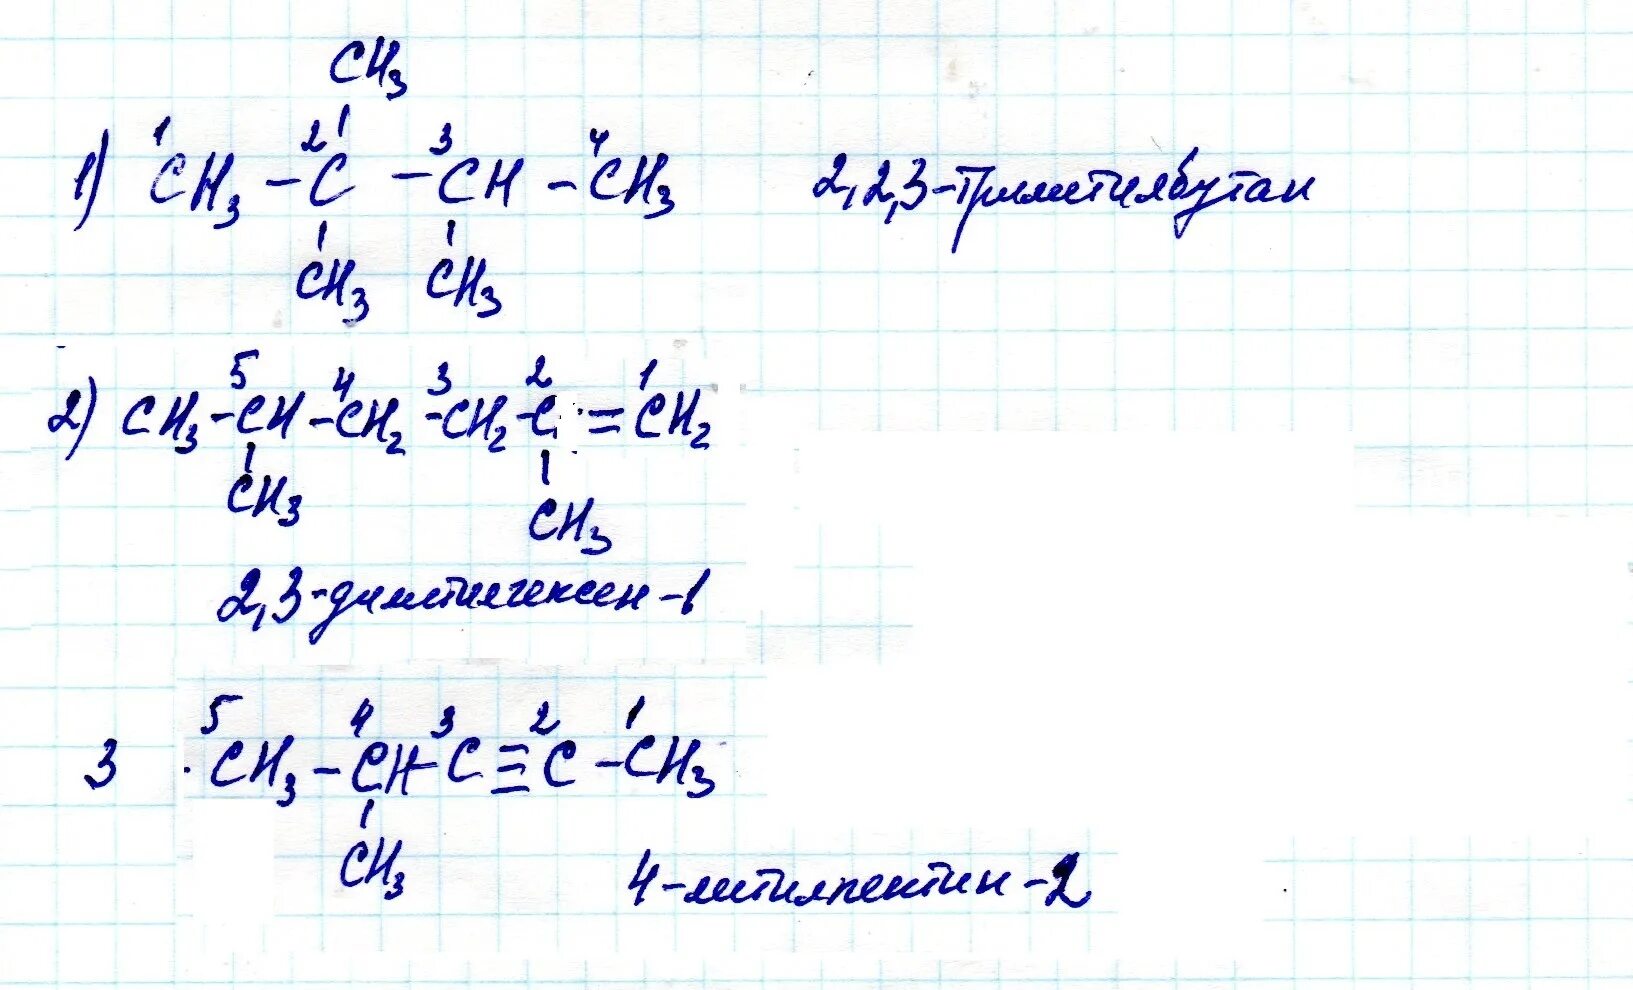 CH₃
1) ¹CH₃ – ²C – ³CH – ⁴CH₃ 2,2,3-триметилбутан
CH₃ CH₃
2) CH₃ – ⁵CH – ⁴CH₂ – ³CH₂ – ²C = ¹CH₂
CH₃ CH₃
2,3-диметилгексен-1
3 ⁵CH₃ – ⁴CH – ³C ≡ ²C – ¹CH₃
CH₃
4-метилпентин-2